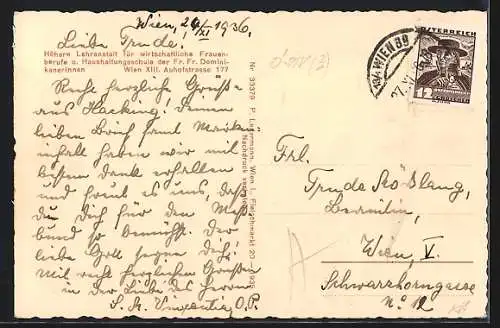 Wien, 26/XI 1936.
Liebe Trude.
Höhere Lehranstalt für wirtschaftliche Frauen-
berufe u. Haushaltungsschule der Fr. Fr. Domini-
kanerinnen Wien XIII. Auhofstrasse 177
Recht herzliche Grüße
aus Hacking! Deinen
lieben Brief samt Marken-
inhalt haben wir mit
bestem Dank erhalten
und freut es uns, daß
Du Dich für den Meß
bund so bemühst. Der
liebe Gott segne Dich!
Mit recht herzlichen Grüßen
in der Liebe des Herrn
S. M. Vincentia, O. P.
Nr. 33379 P. Ledermann, Wien I., Fleischmarkt 20
Nachdruck verboten
134 WIEN 89
27. XI.
ÖSTERREICH
12
GROSCHEN
Frl.
Trude Kößlang,
Beamtin,
Wien, V.
Schwarzhorngasse
No 12